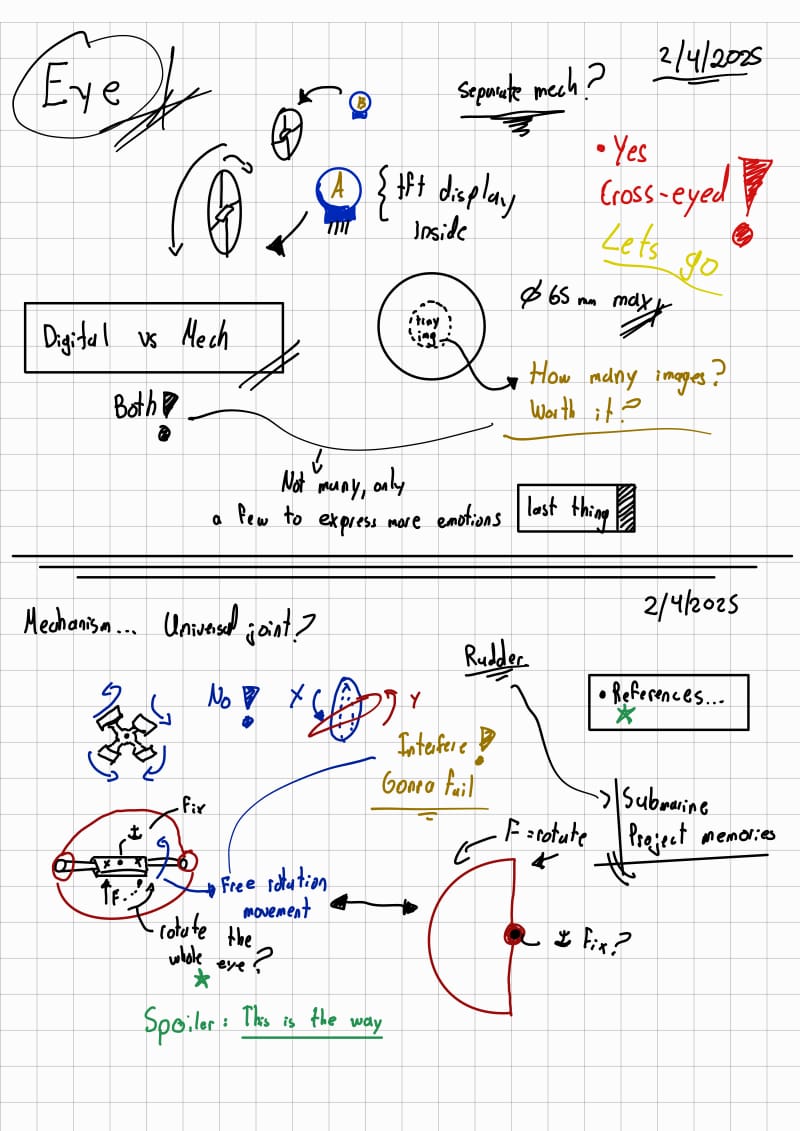 Eye
2/4/2025
Separate mech?
B
• Yes
Cross-eyed!
Lets go
A
{ tft display
inside
Ø 65 mm max
tiny
img
Digital vs Mech
How many images?
Worth it?
Both!
Not many, only
a few to express more emotions
last thing
2/4/2025
Mechanism... Universal joint?
Rudder
• References...
No!
X
Y
Interfere!
Gonna fail
Submarine
Project memories
Fix
F = rotate
F
Free rotation
movement
rotate the
whole eye?
Fix?
Spoiler: This is the way